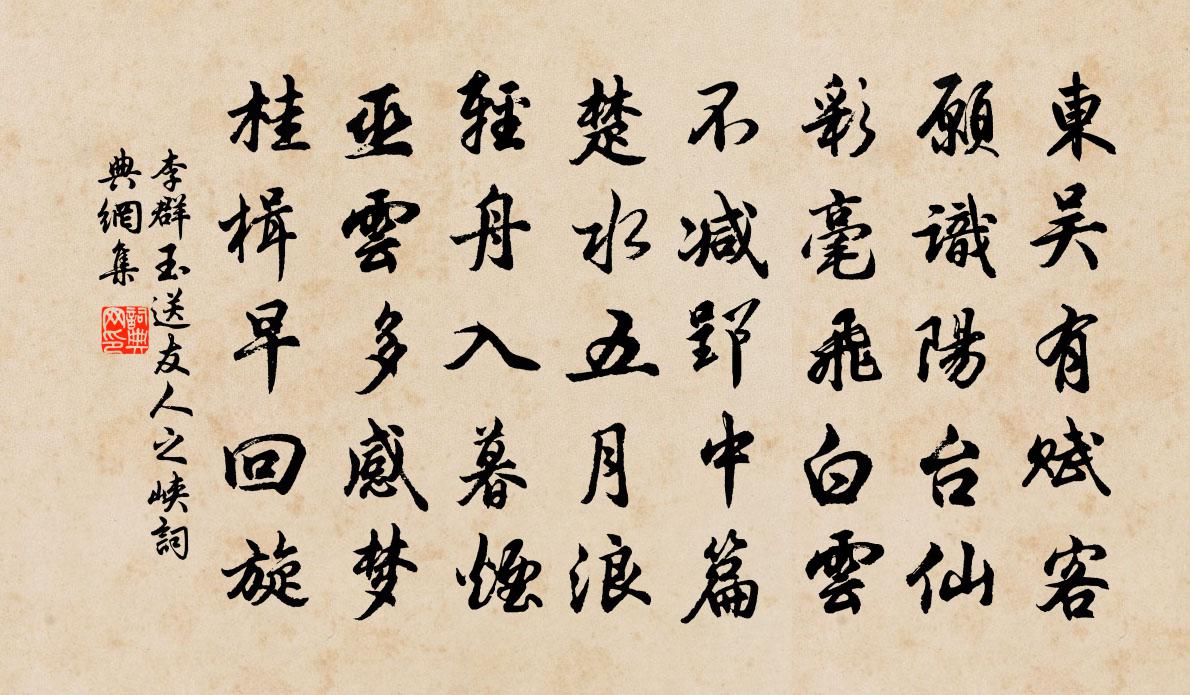 東吴有賦客
願識陽台仙
彩毫飛白雲
不减郢中篇
楚水五月浪
輕舟入暮煙
巫雲多感梦
桂楫早回旋
李群玉送友人之峡詞
典網集
詞典网印